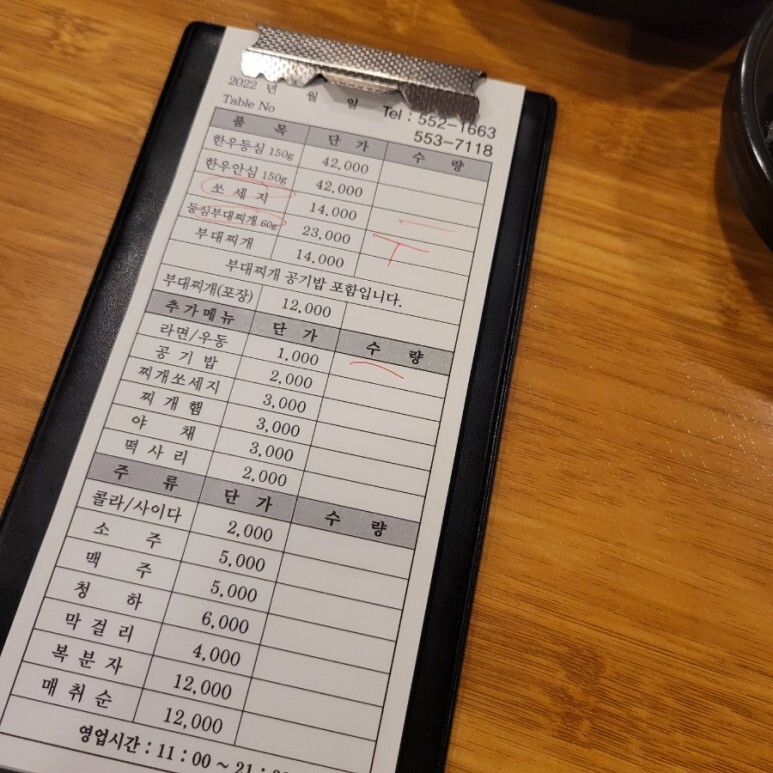 2022 년 월 일
Table No
Tel : 552-1663
553-7118
품 목 단 가 수 량
한우등심 150g 42,000
한우안심 150g 42,000
쏘 세 지 14,000
등심부대찌개 60g 23,000
부대찌개 14,000
부대찌개 공기밥 포함입니다.
부대찌개(포장) 12,000
추가메뉴 단 가 수 량
라면/우동 1,000
공 기 밥 2,000
찌개쏘세지 3,000
찌 개 햄 3,000
야 채 3,000
떡 사 리 2,000
주 류 단 가 수 량
콜라/사이다 2,000
소 주 5,000
맥 주 5,000
청 하 6,000
막 걸 리 4,000
복 분 자 12,000
매 취 순 12,000
영업시간 : 11 : 00 ~ 21 :